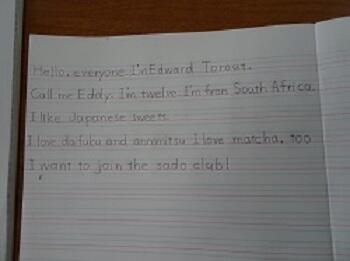 Hello, everyone I'm Edward Torout.
Call me Eddy. I'm twelve I'm from South Africa.
I like Japanese sweets.
I love dafuku and annmitsu I love matcha, too
I want to join the sado club!